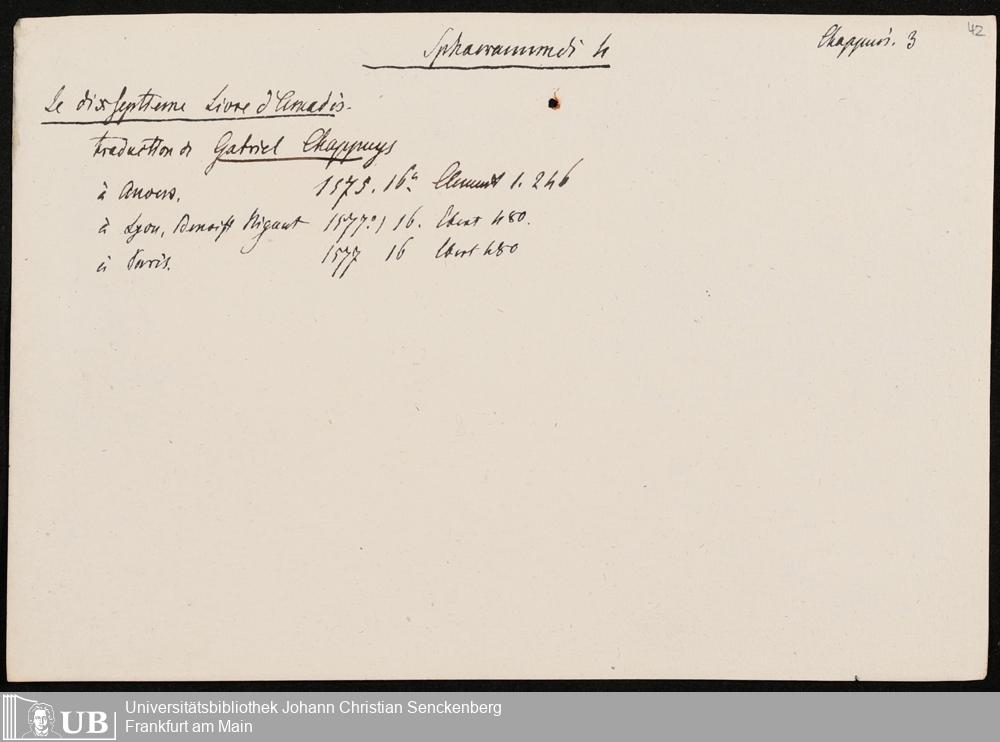 Sphaeramundi 4
Chappuis. 3
42
Le dixseptieme Livre d'Amadis.
traduction de Gabriel Chappuys
à Anvers. 1575. 16º Clement 1. 246
à Lyon, Benoist Rigaut 1577. 16. Ebert 480.
à Paris. 1577 16 Ebert 480
UB Universitätsbibliothek Johann Christian Senckenberg
Frankfurt am Main